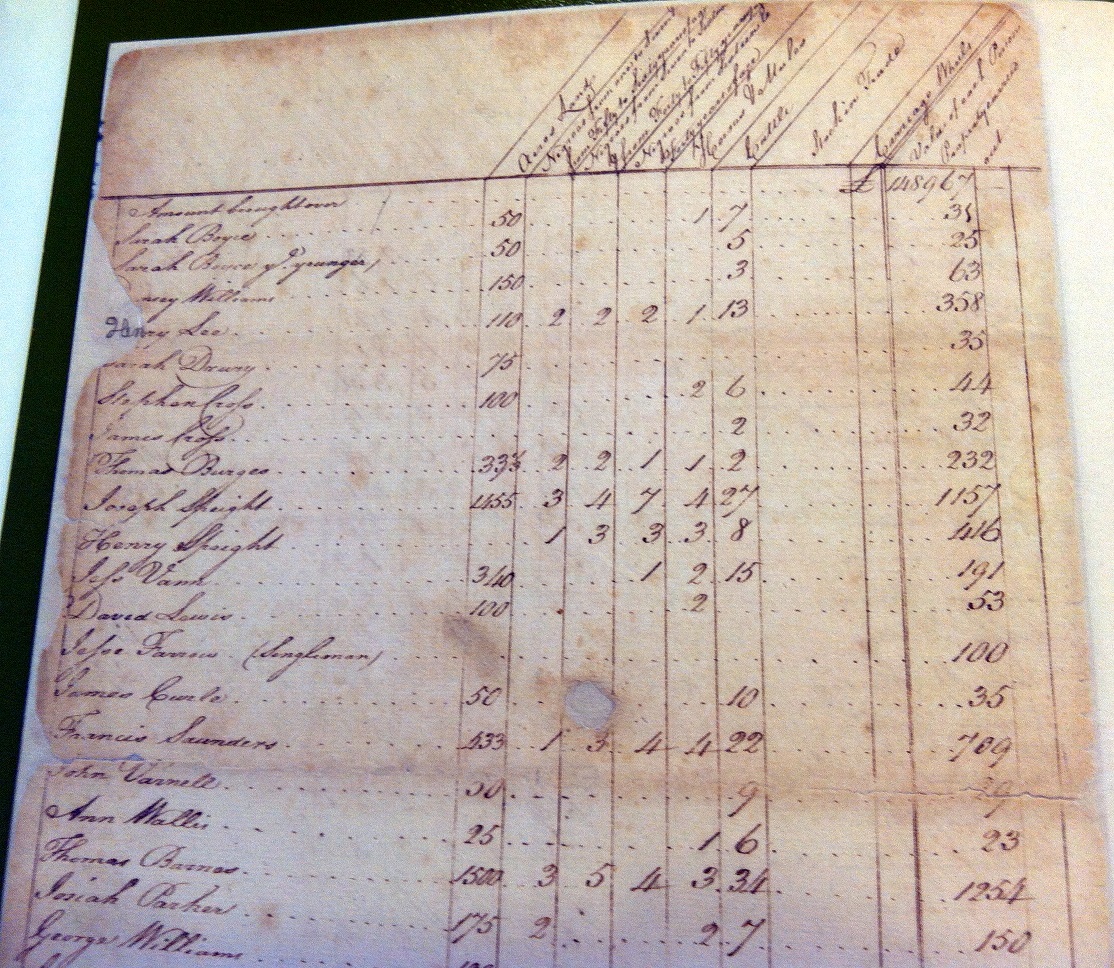 Acres Land
Negroes from
from Fifty to Sixty years of age
Negroes from
from Forty to Fifty years of age
Negroes from
Forty years of age
Horses & Mules
Cattle
Stock in Trade
Carriage Wheels
Value of each Persons
Property
Amount brought over £ 148967
Sarah Boyce 50 1 7
Sarah Boyce ye. younger) 50 5 25
Williams 150 3 63
Henry Lee 110 2 2 2 1 13 358
Sarah Drury 75 35
Stephen Cross 100 2 6 44
James Cross 2 32
Thomas Burges 333 2 2 1 1 2 232
Joseph Speight 1455 3 4 7 4 27 1157
Henry Speight 1 3 3 3 8 416
Jesse Vann 340 1 2 15 191
David Lewis 100 2 53
Jesse Farrow (Singleman) 100
James Curle 50 10 35
Francis Saunders 433 1 3 4 4 22 709
John Varnell 50 9 29
Ann Wallis 25 1 6 23
Thomas Barnes 1500 3 5 4 3 34 1254
Josiah Parker 175 2 2 7 150
George Williams